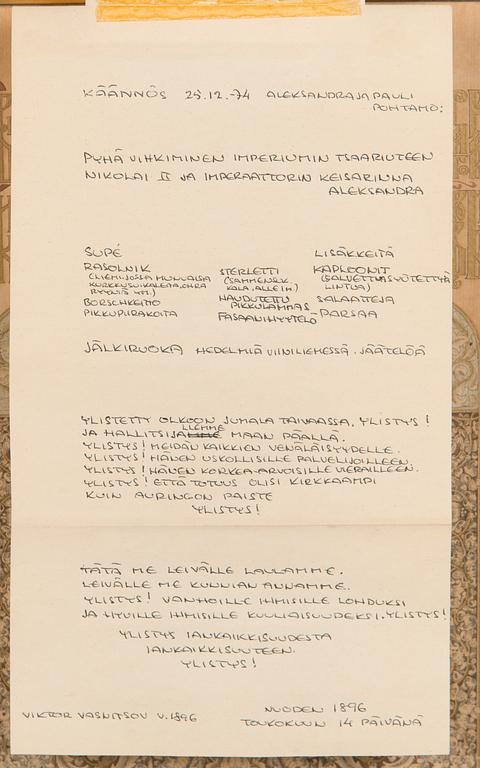 KÄÄNNÖS 25.12.-74 ALEKSANDRA JA PAULI
POHTAMO:
PYHÄ VIHKIMINEN IMPERIUMIN TSAARIUTEEN
NIKOLAI II JA IMPERAATTORIN KEISARINNA
ALEKSANDRA
SUPÉ
RASOLNIK
(LIEMI JOSSA MUNUAISIA
KURKKUSUIKALEITA, OHRA
RYYNIÄ YM.)
BORSCHKEITTO
PIKKUPIIRAKOITA
STERLETTI
(SAMMENSUK.
KALA, ALLE 1 M.)
HAUDUTETTU
PIKKULAMMAS
FASAANIHYYTELÖ
LISÄKKEITÄ
KAPLOONIT
(SALVETTUA SYÖTETTYÄ
LINTUA)
SALAATTEJA
PARSAA
JÄLKIRUOKA HEDELMIÄ VIINILIEMESSÄ. JÄÄTELÖÄ
YLISTETTY OLKOON JUMALA TAIVAASSA, YLISTYS!
LLEMME
JA HALLITSIJAMME MAAN PÄÄLLÄ.
YLISTYS! MEIDÄN KAIKKIEN VENÄLÄISYYDELLE.
YLISTYS! HÄNEN USKOLLISILLE PALVELIJOILLEEN.
YLISTYS! HÄNEN KORKEA-ARVOISILLE VIERAILLEEN.
YLISTYS! ETTÄ TOTUUS OLISI KIRKKAAMPI
KUIN AURINGON PAISTE
YLISTYS!
TÄTÄ ME LEIVÄLLE LAULAMME.
LEIVÄLLE ME KUNNIAN ANNAMME.
YLISTYS! VANHOILLE IHMISILLE LOHDUKSI
JA HYVILLE IHMISILLE KUULIAISUUDEKSI. YLISTYS!
YLISTYS IANKAIKKISUUDESTA
IANKAIKKISUUTEEN.
YLISTYS!
VIKTOR VASNITSOV V. 1896
VUODEN 1896
TOUKOKUUN 14 PÄIVÄNÄ